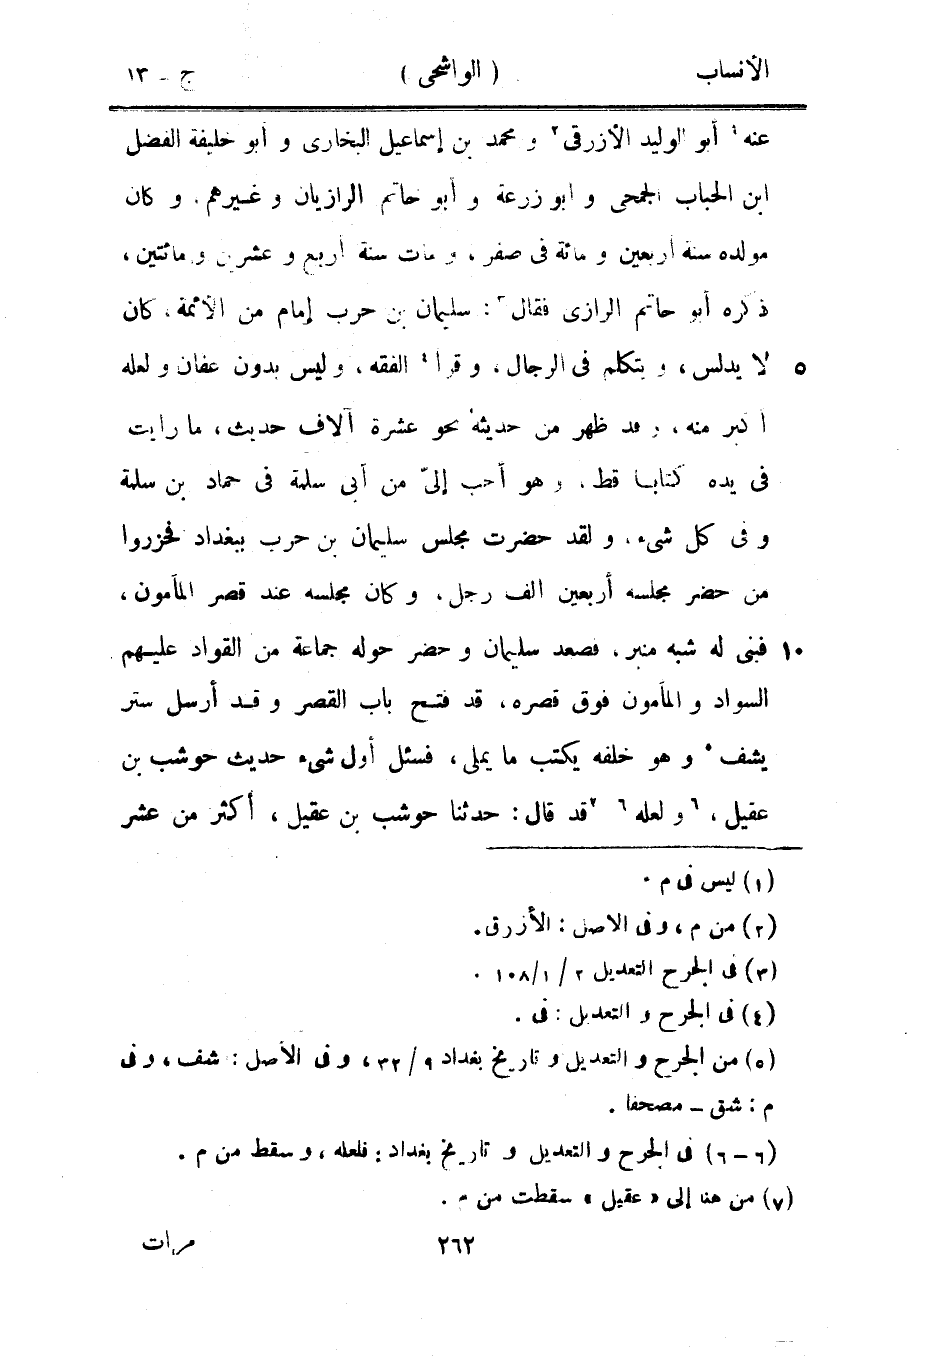 الأنساب ( الواشحى ) ج - ١٣
عنه١ أبو الوليد الأزرقى٢ و محمد بن إسماعيل البخارى و أبو خليفة الفضل
ابن الحباب الجمحى و ابو زرعة و أبو حاتم الرازيان و غيرهم ، و كان
مولده سنة أربعين و مائة فى صفر ، و مات سنة أربع و عشرين و مائتين ،
ذكره أبو حاتم الرازى فقال٣ : سليمان بن حرب إمام من الأئمة ، كان
٥ لا يدلس ، و يتكلم فى الرجال ، و قرأ٤ الفقه ، و ليس بدون عفان و لعله
أكبر منه ، و قد ظهر من حديثه نحو عشرة آلاف حديث ، ما رأيت
فى يده كتابا قط ، و هو أحب إلىّ من أبى سلمة فى حماد بن سلمة
و فى كل شىء ، و لقد حضرت مجلس سليمان بن حرب ببغداد فحزروا
من حضر مجلسه أربعين الف رجل ، و كان مجلسه عند قصر المأمون ،
١٠ فبنى له شبه منبر ، فصعد سليمان و حضر حوله جماعة من القواد عليهم
السواد و المأمون فوق قصره ، قد فتح باب القصر و قد أرسل ستر
يشف٥ و هو خلفه يكتب ما يملى ، فسئل أول شىء حديث حوشب بن
عقيل ، ٦و لعله٦ ٧قد قال : حدثنا حوشب بن عقيل ، أكثر من عشر
(١) ليس فى م .
(٢) من م ، و فى الاصل : الأزرق .
(٣) فى الجرح التعديل ٢ /١ /١٠٨ .
(٤) فى الجرح و التعديل : فى .
(٥) من الجرح و التعديل و تاريخ بغداد ٩ /٣٢ ، و فى الأصل : شف ، و فى
م : شق - مصحفا .
(٦ - ٦) فى الجرح و التعديل و تاريخ بغداد : فلعله ، و سقط من م .
(٧) من هنا إلى « عقيل » سقطت من م .
٢٦٢ مرات